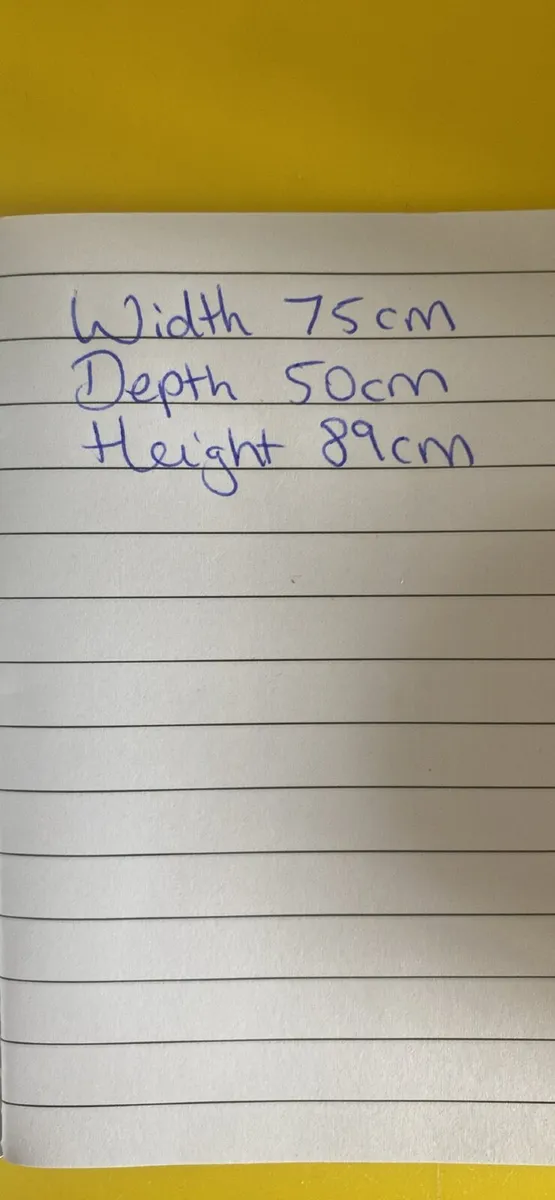 Width 75cm
Depth 50cm
Height 89cm